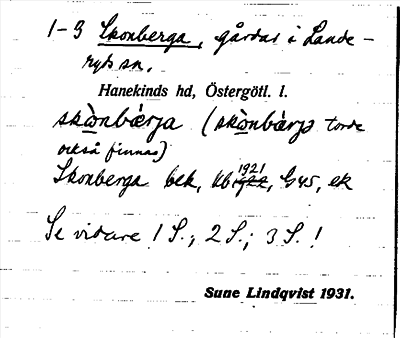 1-3 Skonberga, gårdar i Lande-
ryds sn.
Hanekinds hd, Östergötl. l.
skònbæ̀rja (skònbæ̀rjə torde
också finnas)
Skonberga bek, Ub 1921, G45, ek
Se vidare 1 S.; 2 S.; 3 S.!
Sune Lindqvist 1931.